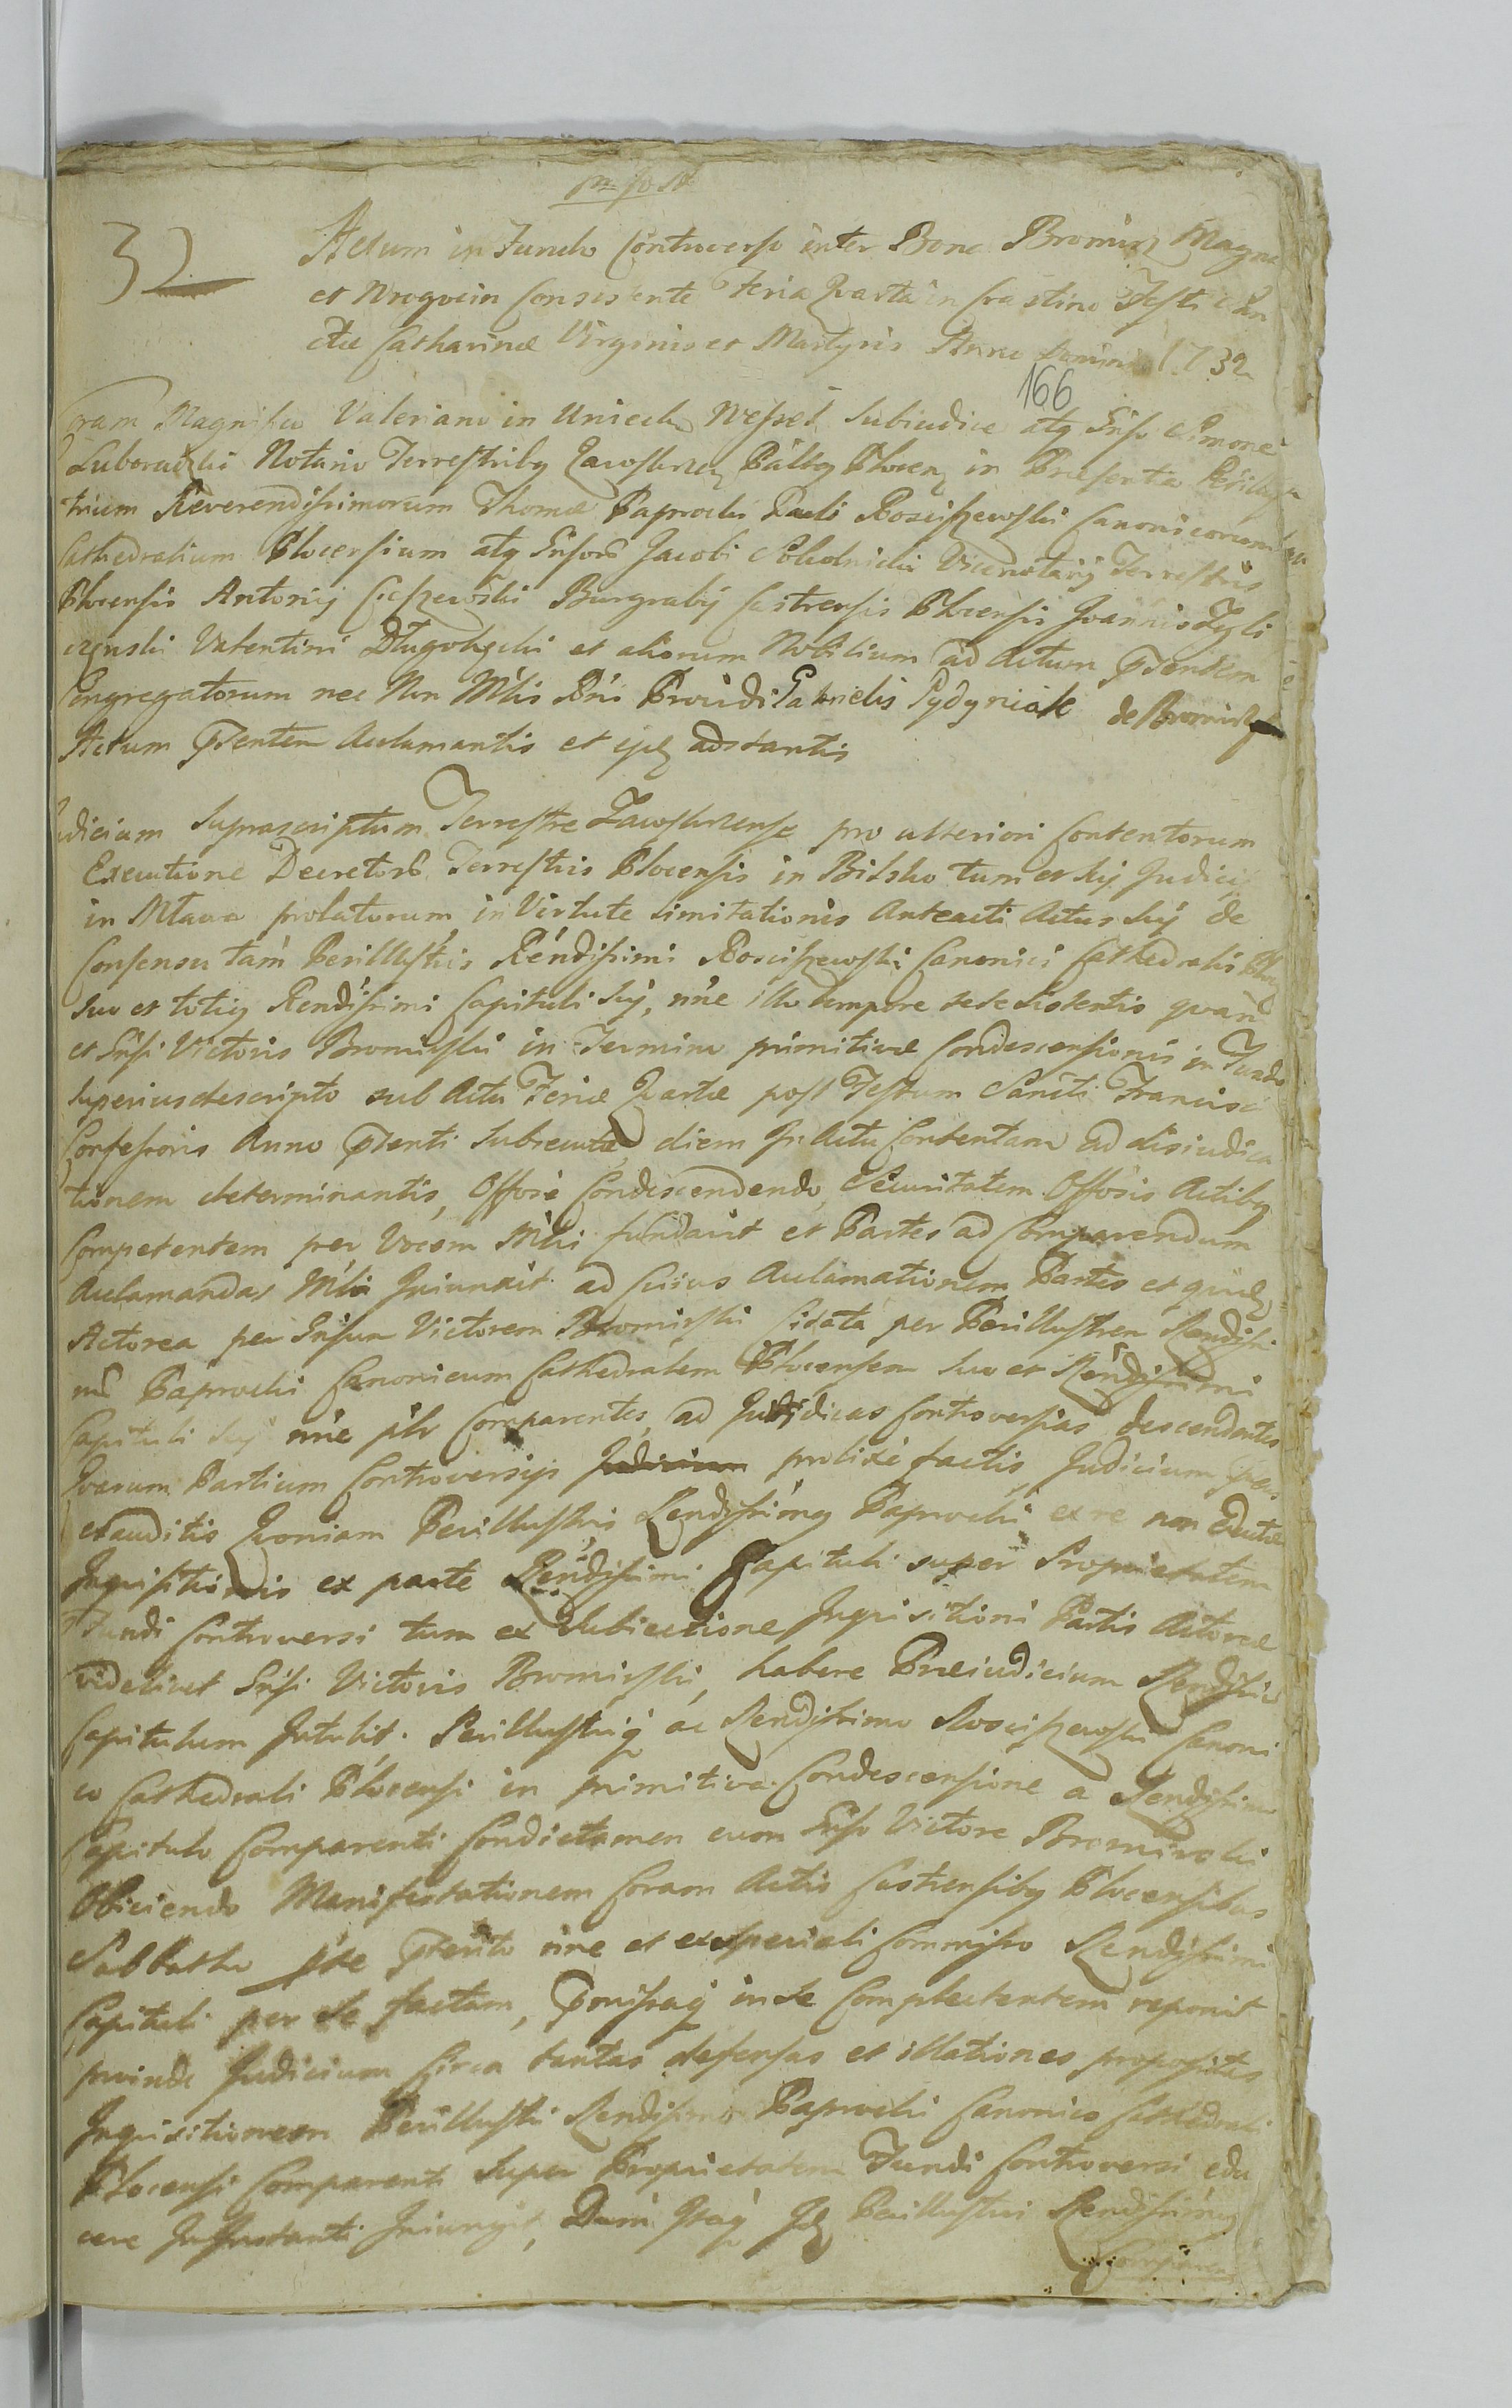 32
Actum in Fundo Controverso inter Bona Bromierz Magna
et Wrogocin Consistente Feria Quarta in Crastino Festi San
ctae Catharinae Virginis et Martyris Anno Domini 1732
166
Coram Magnifico Valeriano in Uniecko Wessel Subiudice atq Gnso Simone
Luboradzki Notario Terrestribq Zawskrzen Palbq Plocen in Praesentia Perillus
trium Reverendissimorum Thomae Paprocki Pauli Rosciszewski Canonicorum
Cathedralium Plocensium atq Gnsorũ Jacobi Vicenotarij Terrestris
Plocensis Antonij Burgrabij Castrensis Plocensis Joannis
Valentini et aliorum Nobilium ad Actum pntem
Congregatorum nec Non Mlis Rni Providi Gabrielis Pydyniak de Bromierz
Actum pntem Aclamantis et adstantis
Judicium Suprascriptum Terrestre Zawskrzense pro ulteriori Contentorum
Executione Decretorũ Terrestris Plocensis in Bilsko tum et Sui Judicij
in Mlawa prolatorum, in Virtute limitationis Anteacti Actus Sui de
Consensu tam Perillustris Rendissimi Rosciszewski Canonici Cathedralis Plocen
suo et totiq Rendissimi Capituli Sui, nne illo tempore sese sistentis quam
et Gnsi Victoris Bromirski in Termino primitivae Condescensionis in Fundo
superius descripto sub Actu Feriae Quartae post Festum Sancti Francisci
Confessoris Anno pnti Subsecuta diem in Actu Contentam ad disiudica
tionem determinantis, Offose Condescendendo, Securitatem Offosis Actibq
Competentem per Vocem Mlis fundavit et Partes ad Comparendum
Aclamandas Mli Iniunxit. ad Cuius Aclamationem Partes et quidem
Actorea per Gnsum Victorem Bromirski Citata per Perillustrem Rendissi
mũ Paprocki Canonicum Cathedralem Plocensem suo et Rendissimi
Capituli Sui nne Comparentes, ad Iuridicas Controversias descendentes
Quarum Partium Controversijs prolixe factis Judicium
exauditis Quoniam Perillustris Rendissimq Paprocki ex re non Eductae
Inquisitionis ex parte Rendissimi Capituli super Proprietatem
Fundi Controversi tum ex Subiectione Inquisitioni Partis Actoreae
videlicet Gnsi Victoris Bromirski, habere Praeiudicium Rendissimũ
Capitulum Intulit. Perillustriq ac Rendissimo Rosciszewski Canoni
co Cathedrali Plocensi in primitiva Condescensione a Rendissimo
Capitulo Comparenti Condictamen cum Gnso Victore Bromirski
Obiiciendo Manifestationem Coram Actis Castrensibq Plocensibus
Sabbatho nne et ex speciali Commisso Rendissimi
Capituli per se factam, in se Complectentem reponit
proinde Judicium Circa tantas defensas et illationes propositas
Inquisitionem Perillustri Rendissimo Paprocki Canonico Cathedrali
Plocensi Comparenti Super Proprietatem Fundi Controversi edu
cere Iniungit, Dum Itaq Idem Perillustris Rendissimq